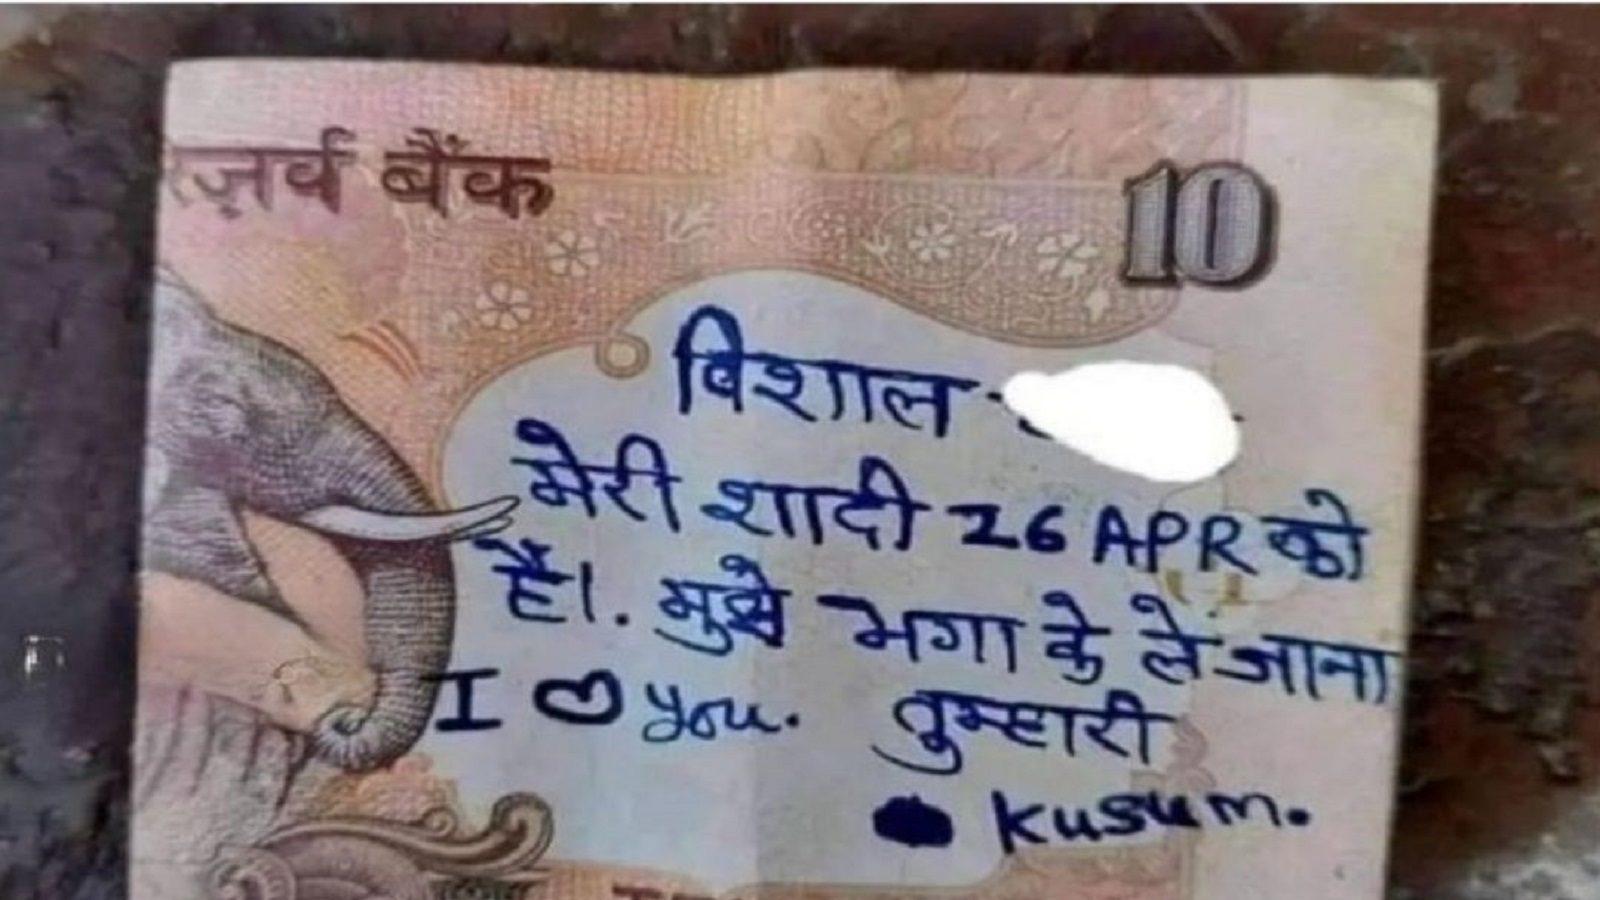 ज़र्व बैंक
10
विशाल
मेरी शादी 26 APR को
है।. मुझे भगा के ले जाना
I ♡ you. तुम्हारी
kusum.